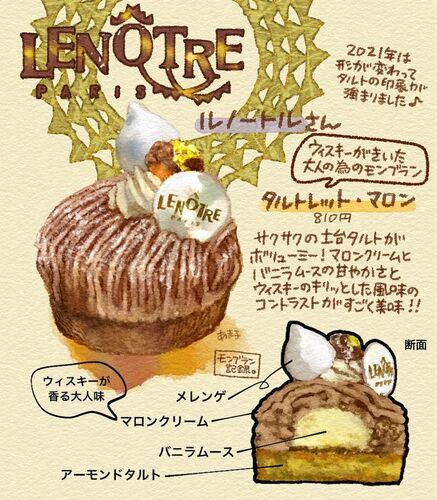 LENÔTRE
PARIS
2021年は
形が変わって
タルトの印象が
強まりました♪
ルノートルさん
ウィスキーがきいた
大人の為のモンブラン
タルトレット・マロン
810円
LENÔTRE
サクサクの土台タルトが
ボリューミー!マロンクリームと
バニラムースの甘やかさと
ウィスキーのキリッとした風味の
コントラストがすごく美味!!
あまる
モンブラン
記録。
断面
ウィスキーが
香る大人味
メレンゲ
マロンクリーム
バニラムース
アーモンドタルト